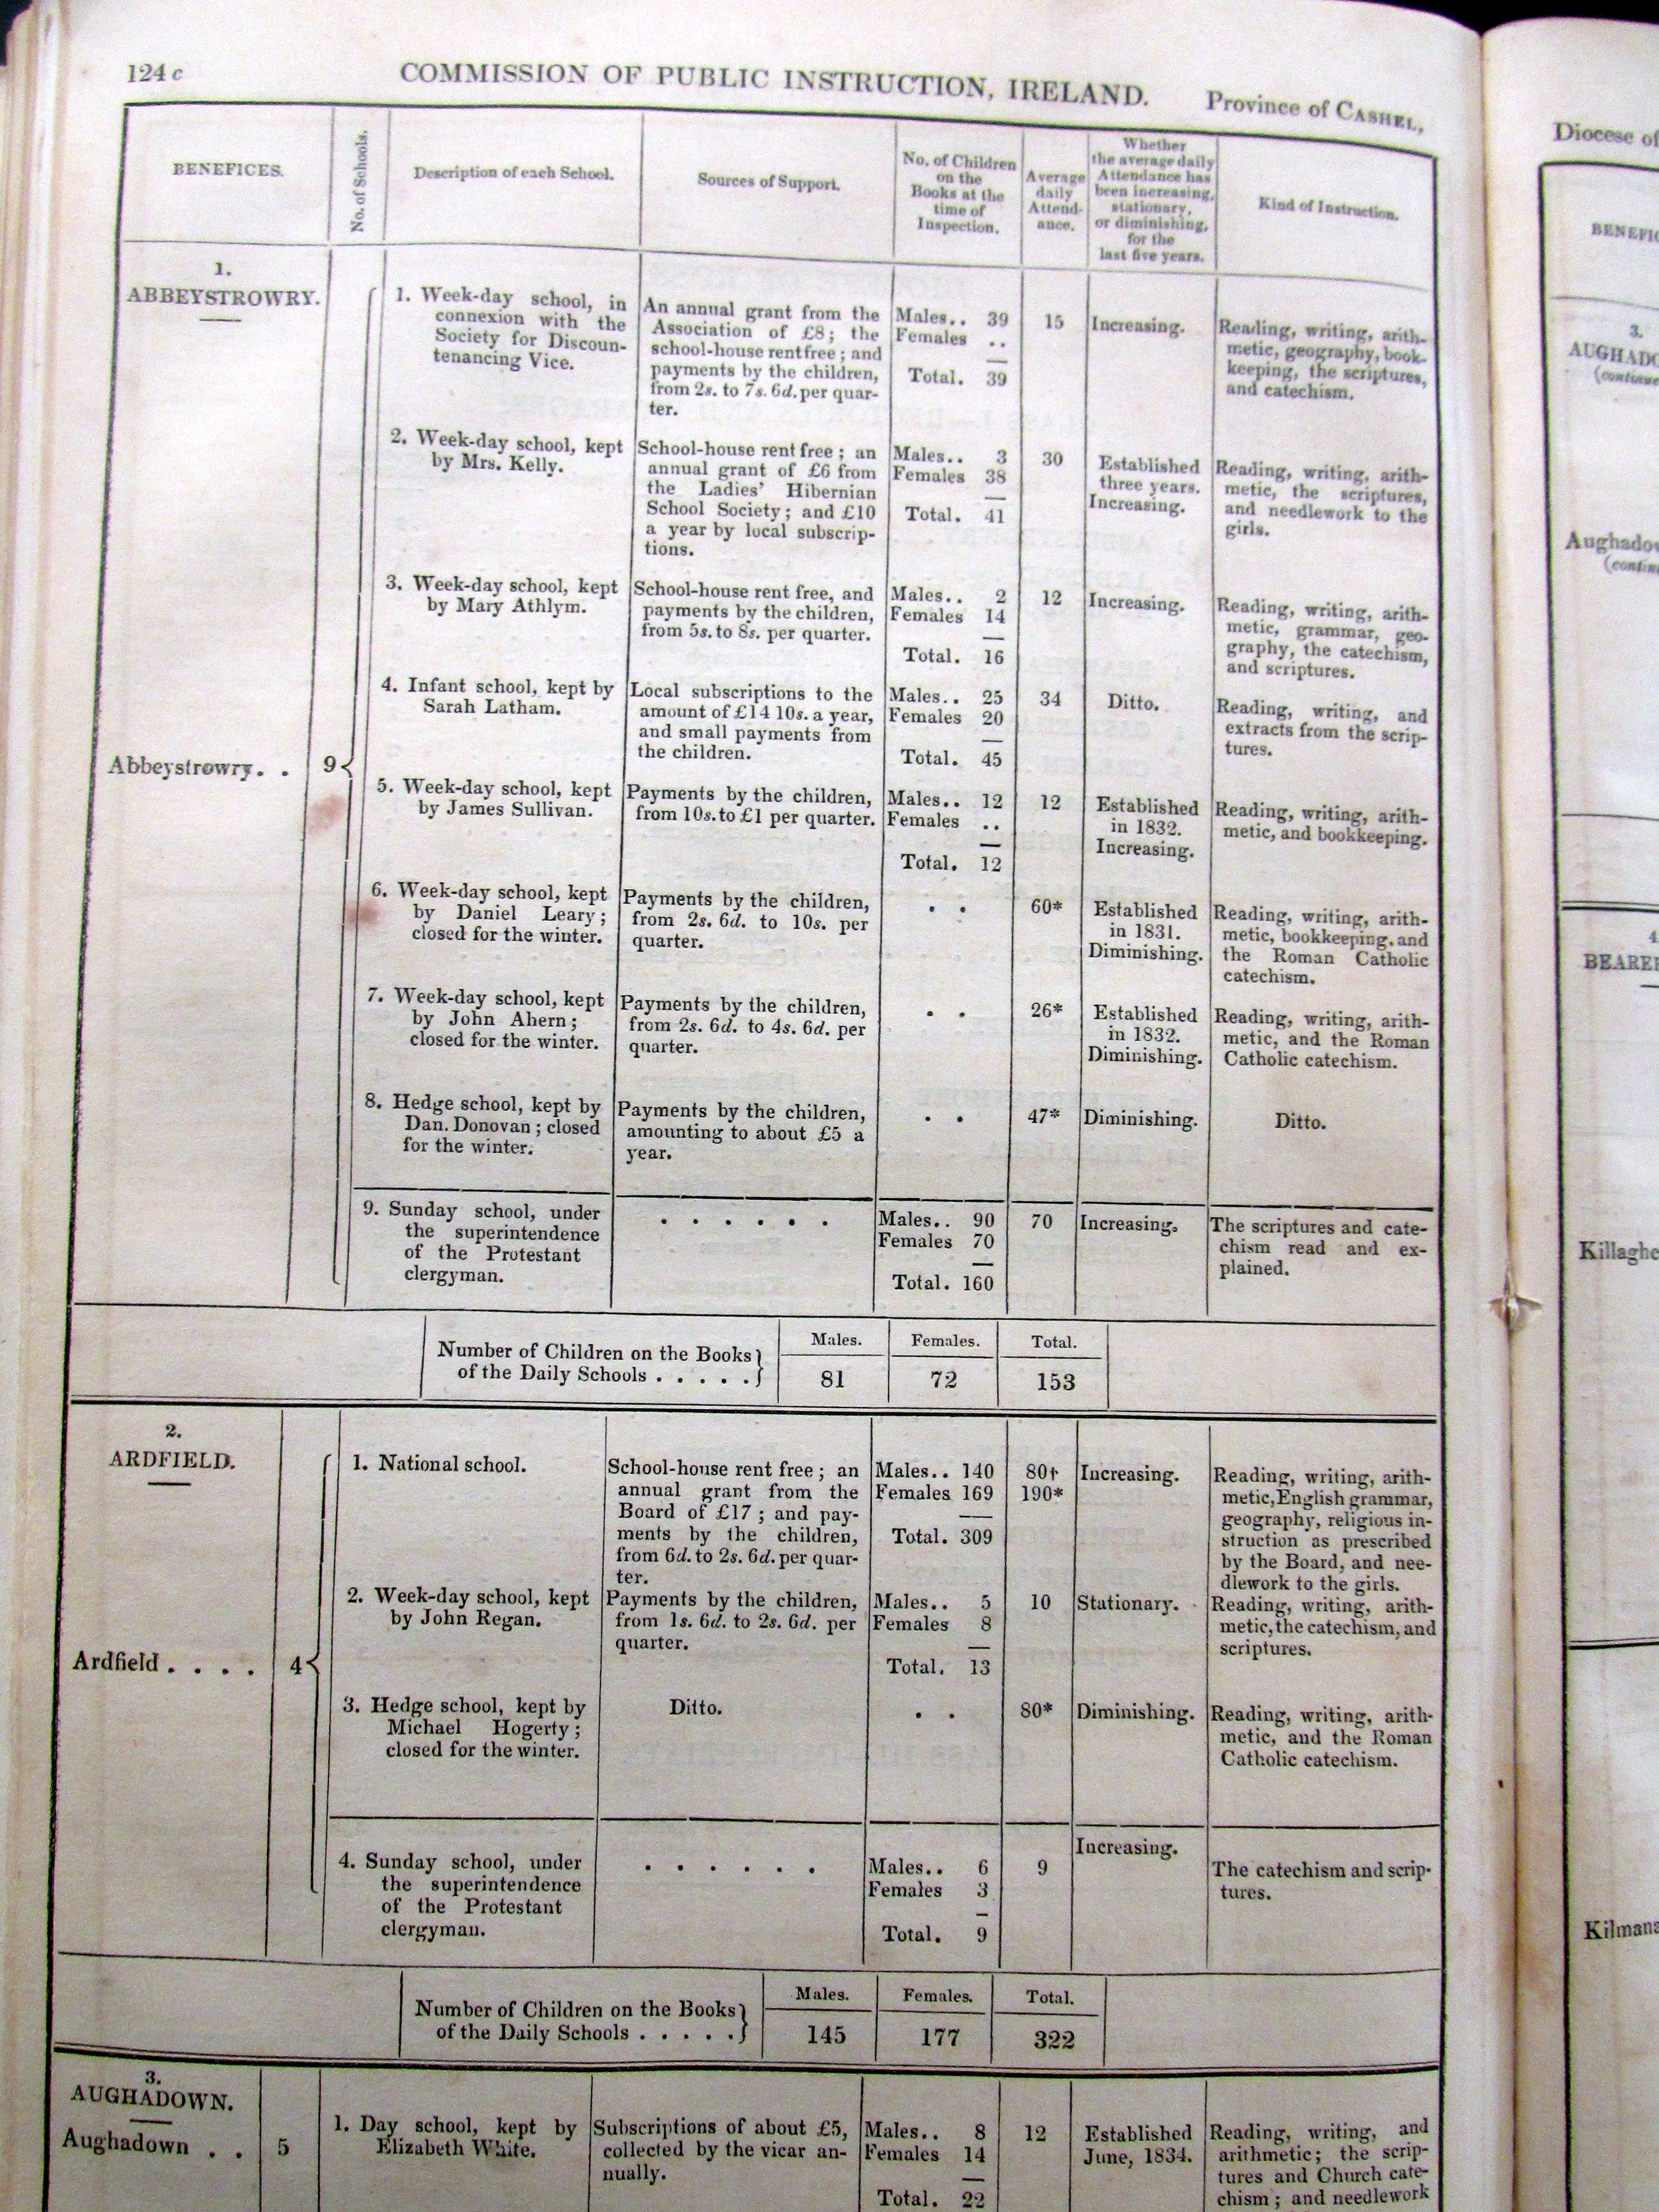 124 c
COMMISSION OF PUBLIC INSTRUCTION, IRELAND.
Province of CASHEL,
BENEFICES.
No. of Schools.
Description of each School.
Sources of Support.
No. of Children
on the
Books at the
time of
Inspection.
Average
daily
Attend-
ance.
Whether
the average daily
Attendance has
been increasing,
stationary,
or diminishing,
for the
last five years.
Kind of Instruction.
1.
ABBEYSTROWRY.
Abbeystrowry. .
9
1. Week-day school, in
connexion with the
Society for Discoun-
tenancing Vice.
An annual grant from the
Association of £8; the
school-house rent free; and
payments by the children,
from 2s. to 7s. 6d. per quar-
ter.
Males.. 39
Females ..
Total. 39
15
Increasing.
Reading, writing, arith-
metic, geography, book-
keeping, the scriptures,
and catechism.
2. Week-day school, kept
by Mrs. Kelly.
School-house rent free; an
annual grant of £6 from
the Ladies' Hibernian
School Society; and £10
a year by local subscrip-
tions.
Males.. 3
Females 38
Total. 41
30
Established
three years.
Increasing.
Reading, writing, arith-
metic, the scriptures,
and needlework to the
girls.
3. Week-day school, kept
by Mary Athlym.
School-house rent free, and
payments by the children,
from 5s. to 8s. per quarter.
Males.. 2
Females 14
Total. 16
12
Increasing.
Reading, writing, arith-
metic, grammar, geo-
graphy, the catechism,
and scriptures.
4. Infant school, kept by
Sarah Latham.
Local subscriptions to the
amount of £14 10s. a year,
and small payments from
the children.
Males.. 25
Females 20
Total. 45
34
Ditto.
Reading, writing, and
extracts from the scrip-
tures.
5. Week-day school, kept
by James Sullivan.
Payments by the children,
from 10s. to £1 per quarter.
Males.. 12
Females ..
Total. 12
12
Established
in 1832.
Increasing.
Reading, writing, arith-
metic, and bookkeeping.
6. Week-day school, kept
by Daniel Leary;
closed for the winter.
Payments by the children,
from 2s. 6d. to 10s. per
quarter.
. .
60*
Established
in 1831.
Diminishing.
Reading, writing, arith-
metic, bookkeeping, and
the Roman Catholic
catechism.
7. Week-day school, kept
by John Ahern;
closed for the winter.
Payments by the children,
from 2s. 6d. to 4s. 6d. per
quarter.
. .
26*
Established
in 1832.
Diminishing.
Reading, writing, arith-
metic, and the Roman
Catholic catechism.
8. Hedge school, kept by
Dan. Donovan; closed
for the winter.
Payments by the children,
amounting to about £5 a
year.
. .
47*
Diminishing.
Ditto.
9. Sunday school, under
the superintendence
of the Protestant
clergyman.
. . . . . .
Males.. 90
Females 70
Total. 160
70
Increasing.
The scriptures and cate-
chism read and ex-
plained.
Number of Children on the Books
of the Daily Schools . . . . .
Males. Females. Total.
81 72 153
2.
ARDFIELD.
Ardfield . . . .
4
1. National school.
School-house rent free; an
annual grant from the
Board of £17; and pay-
ments by the children,
from 6d. to 2s. 6d. per quar-
ter.
Males.. 140
Females 169
Total. 309
80†
190*
Increasing.
Reading, writing, arith-
metic, English grammar,
geography, religious in-
struction as prescribed
by the Board, and nee-
dlework to the girls.
2. Week-day school, kept
by John Regan.
Payments by the children,
from 1s. 6d. to 2s. 6d. per
quarter.
Males.. 5
Females 8
Total. 13
10
Stationary.
Reading, writing, arith-
metic, the catechism, and
scriptures.
3. Hedge school, kept by
Michael Hogerty;
closed for the winter.
Ditto.
. .
80*
Diminishing.
Reading, writing, arith-
metic, and the Roman
Catholic catechism.
4. Sunday school, under
the superintendence
of the Protestant
clergyman.
. . . . . .
Males.. 6
Females 3
Total. 9
9
Increasing.
The catechism and scrip-
tures.
Number of Children on the Books
of the Daily Schools . . . . .
Males. Females. Total.
145 177 322
3.
AUGHADOWN.
Aughadown . .
5
1. Day school, kept by
Elizabeth White.
Subscriptions of about £5,
collected by the vicar an-
nually.
Males.. 8
Females 14
Total. 22
12
Established
June, 1834.
Reading, writing, and
arithmetic; the scrip-
tures and Church cate-
chism; and needlework
Diocese of
BENEFIC
3.
AUGHADO
(continue
Aughadow
(contin
4
BEARE
Killaghe
Kilmana